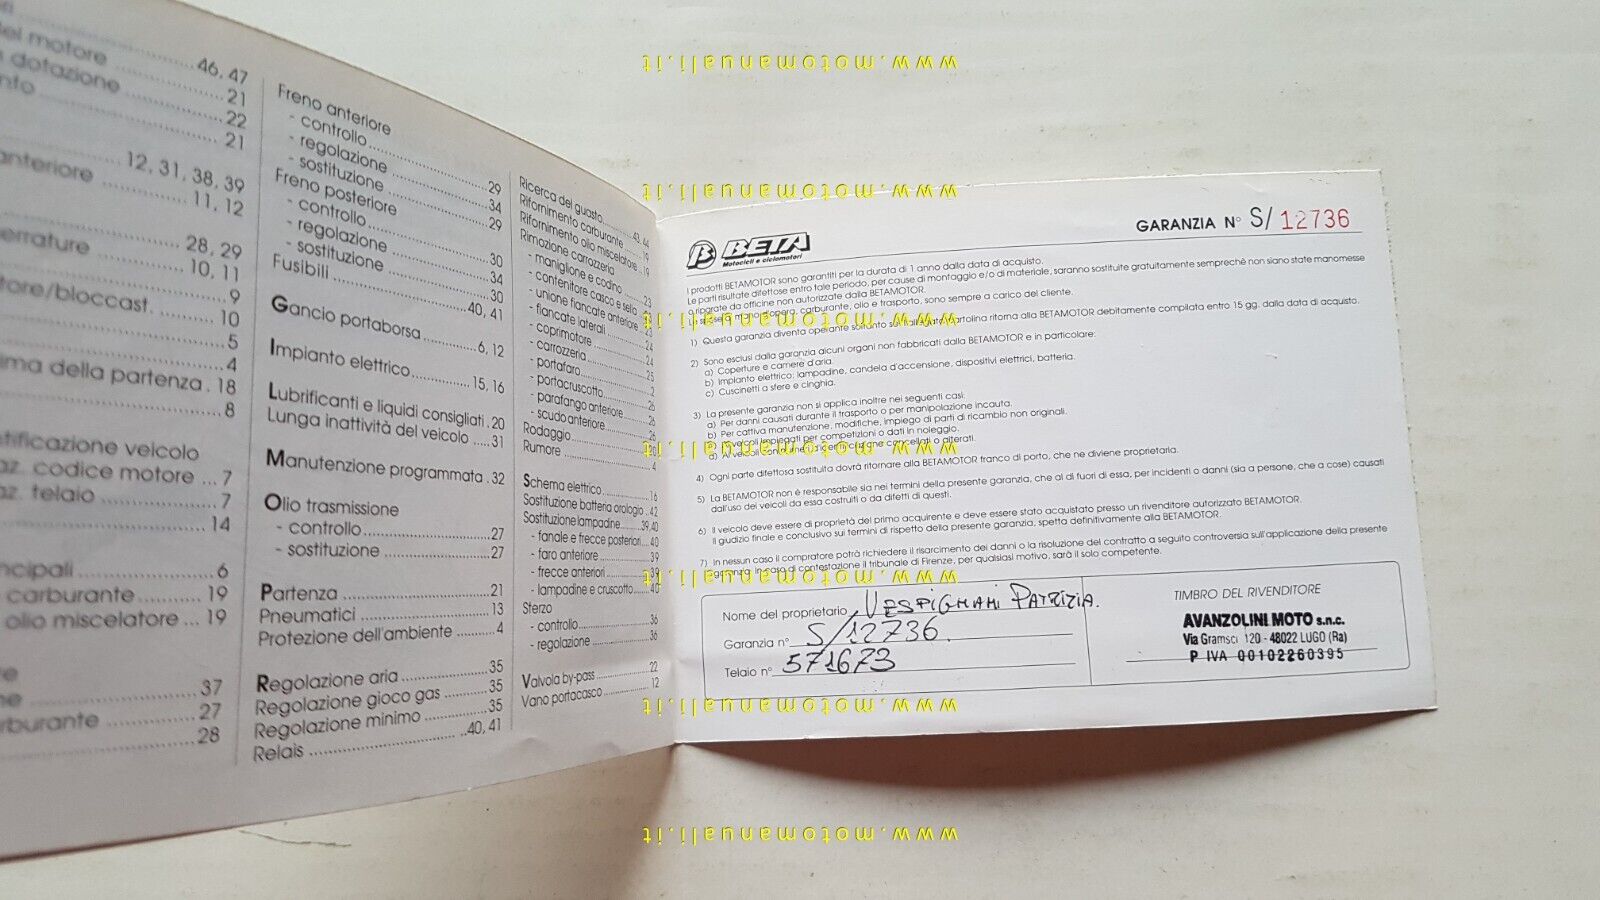 del motore ........ 46, 47
dotazione ........ 21
........ 22
........ 21
anteriore ........ 12, 31, 38, 39
........ 11, 12
........ 28, 29
........ 10, 11
........ 9
tore/bloccast. ........ 10
........ 5
........ 4
ima della partenza . 18
........ 8
ntificazione veicolo
az. codice motore ... 7
az. telaio ........ 7
........ 14
ncipali ........ 6
carburante ........ 19
olio miscelatore ... 19
........ 37
rburante ........ 27
........ 28
Freno anteriore
- controllo ........ 29
- regolazione ........ 34
- sostituzione ........ 29
Freno posteriore
- controllo ........ 30
- regolazione ........ 34
- sostituzione ........ 30
Fusibili ........ 40, 41
Gancio portaborsa ........ 6, 12
Impianto elettrico ........ 15, 16
Lubrificanti e liquidi consigliati . 20
Lunga inattività del veicolo ..... 31
Manutenzione programmata . 32
Olio trasmissione
- controllo ........ 27
- sostituzione ........ 27
Partenza ........ 21
Pneumatici ........ 13
Protezione dell'ambiente ........ 4
Regolazione aria ........ 35
Regolazione gioco gas ........ 35
Regolazione minimo ........ 35
Relais ........ 40, 41
Ricerca del guasto ........ 43, 44
Rifornimento carburante ........ 19
Rifornimento olio miscelatore .. 19
Rimozione carrozzeria
- maniglione e codino ........ 23
- contenitore casco e sella
- unione fiancate anteriore .. 23
- fiancate laterali ........ 24
- coprimotore ........ 24
- carrozzeria ........ 25
- portafaro ........ 2
- portacruscotto ........ 26
- parafango anteriore ........ 26
- scudo anteriore ........ 26
Rodaggio ........ 20
Rumore ........ 4
Schema elettrico ........ 16
Sostituzione batteria orologio . 42
Sostituzione lampadine ........ 39, 40
- fanale e frecce posteriori ... 40
- faro anteriore ........ 39
- frecce anteriori ........ 39
- lampadine e cruscotto ........ 40
Sterzo
- controllo ........ 36
- regolazione ........ 36
Valvola by-pass ........ 22
Vano portacasco ........ 12
BETA
Motocicli e ciclomotori
GARANZIA N° S/ 12736
I prodotti BETAMOTOR sono garantiti per la durata di 1 anno dalla data di acquisto.
Le parti risultate difettose entro tale periodo, per cause di montaggio e/o di materiale, saranno sostituite gratuitamente sempreché non siano state manomesse
o riparate da officine non autorizzate dalla BETAMOTOR.
Le spese di mano d'opera, carburante, olio e trasporto, sono sempre a carico del cliente.
1) Questa garanzia diventa operante soltanto se l'allegata cartolina ritorna alla BETAMOTOR debitamente compilata entro 15 gg. dalla data di acquisto.
2) Sono esclusi dalla garanzia alcuni organi non fabbricati dalla BETAMOTOR e in particolare:
a) Coperture e camere d'aria.
b) Impianto elettrico: lampadine, candela d'accensione, dispositivi elettrici, batteria.
c) Cuscinetti a sfere e cinghia.
3) La presente garanzia non si applica inoltre nei seguenti casi:
a) Per danni causati durante il trasporto o per manipolazione incauta.
b) Per cattiva manutenzione, modifiche, impiego di parti di ricambio non originali.
c) A veicoli impiegati per competizioni o dati in noleggio.
d) A veicoli con numeri di identificazione cancellati o alterati.
4) Ogni parte difettosa sostituita dovrà ritornare alla BETAMOTOR franco di porto, che ne diviene proprietaria.
5) La BETAMOTOR non è responsabile sia nei termini della presente garanzia, che al di fuori di essa, per incidenti o danni (sia a persone, che a cose) causati
dall'uso dei veicoli da essa costruiti o da difetti di questi.
6) Il veicolo deve essere di proprietà del primo acquirente e deve essere stato acquistato presso un rivenditore autorizzato BETAMOTOR.
Il giudizio finale e conclusivo sui termini di rispetto della presente garanzia, spetta definitivamente alla BETAMOTOR.
7) In nessun caso il compratore potrà richiedere il risarcimento dei danni o la risoluzione del contratto a seguito controversia sull'applicazione della presente
garanzia. In caso di contestazione il tribunale di Firenze, per qualsiasi motivo, sarà il solo competente.
Nome del proprietario VESPIGNANI PATRIZIA.
Garanzia n° S/12736.
Telaio n° 571673
TIMBRO DEL RIVENDITORE
AVANZOLINI MOTO s.n.c.
Via Gramsci 120 - 48022 LUGO (Ra)
P IVA 00102260395
www.motomanuali.it
www.motomanuali.it
www.motomanuali.it
www.motomanuali.it
www.motomanuali.it
www.motomanuali.it
www.motomanuali.it